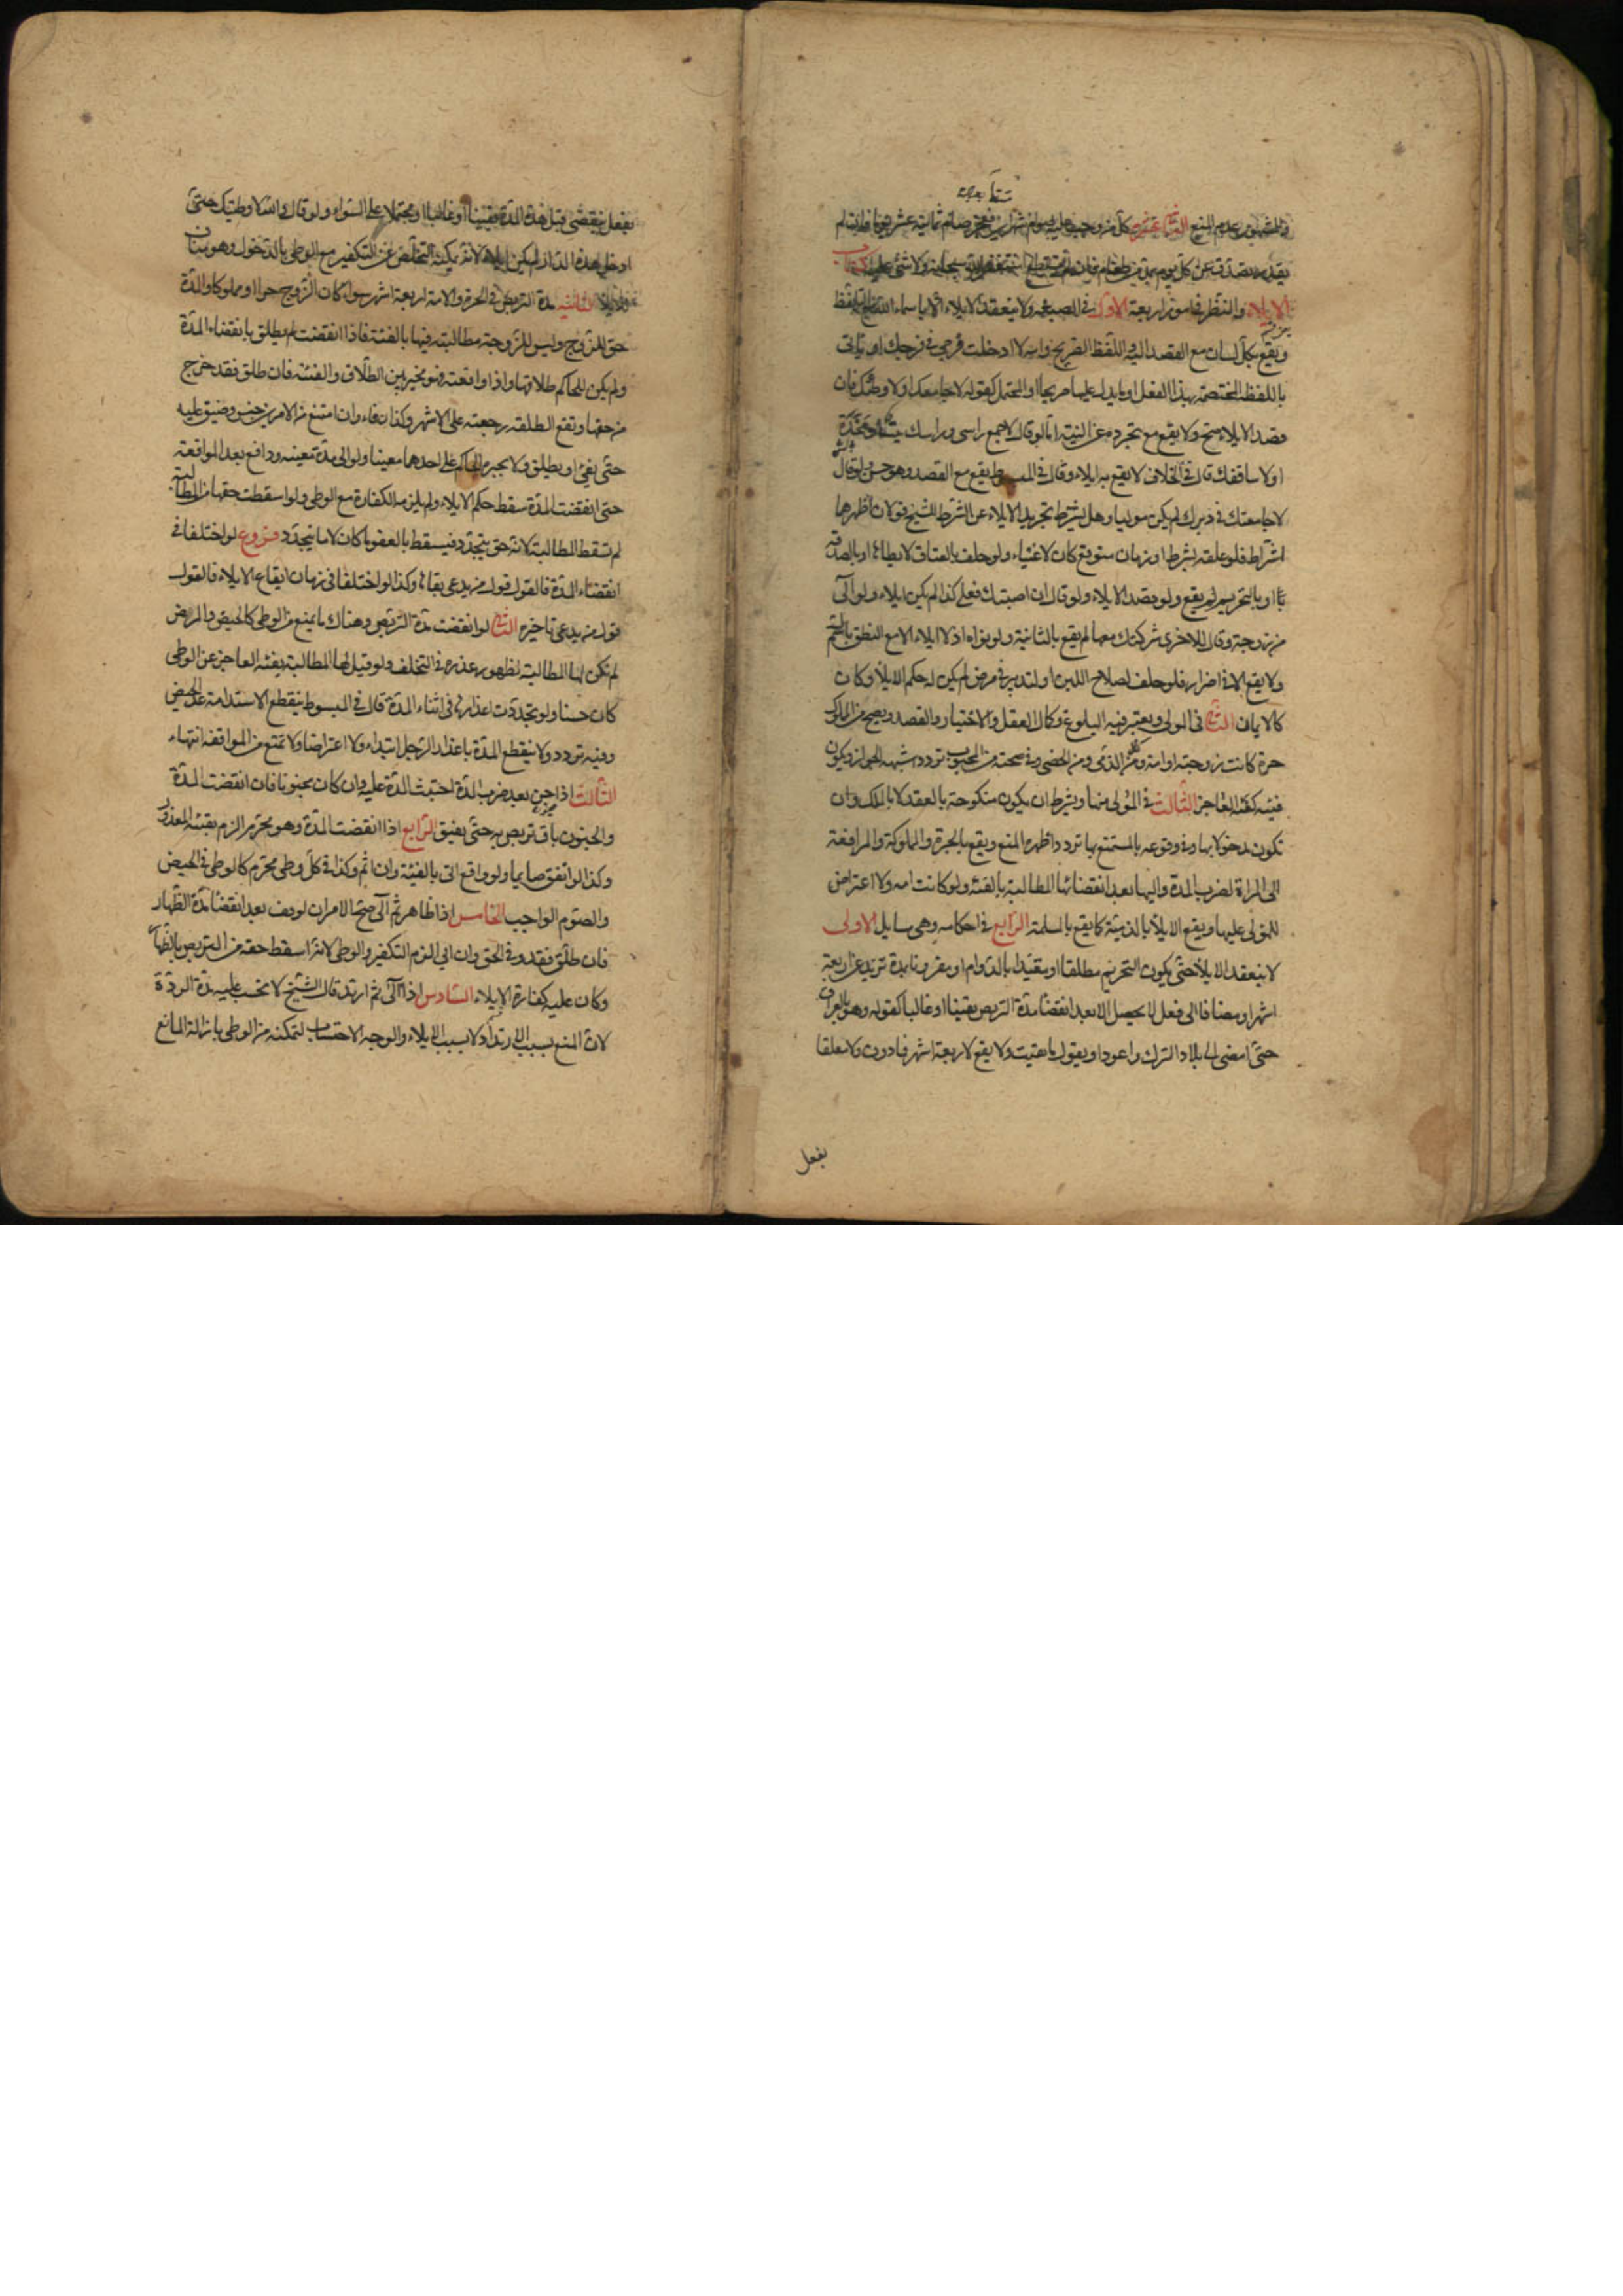 متتابعين
والاشبه عدم المنع الثانية عشر كل من وجب عليه صوم شهرين فعجز صام ثمانية عشر يوما فان لم
يقدر تصدق عن كل يوم بمد من طعام فان لم يستطع استغفر الله سبحانه ولا شئ عليه كتاب
الايلاء والنظر في امور اربعة الاول في الصيغة ولا ينعقد الايلاء الا باسماء الله مع التلفظ
ويقع بكل لسان مع القصد اليه واللفظ الصريح والله لا ادخلت فرجي في فرجك او ياتي
باللفظة المختصة بهذا الفعل او يا يدل عليها صريحا والمحتمل كقوله لا جامعتك او لا وطئتك فان
قصد الايلاء صح ولا يقع مع تجرده عن النية اما لو قال لا جمع راسي وراسك بيت او مخدة
او لا ساقفتك قال في الخلاف لا يقع به ايلاء وقال في المبسوط يقع مع القصد وهو حسن ولو قال
لا جامعتك في دبرك لم يكن موليا وهل يشترط تجريد الايلاء عن الشرط للشيخ قولان اظهرهما
اشتراط فلو علقه بشرط او زمان متوقع كان لاغيا ولو حلف بالعتاق لا يطاها او بالصدقة
او بالتحريم لم يقع ولو قصد الايلاء ولو قال ان اصبتك فعلي كذا لم يكن ايلاء ولو آلى
من زوجة وقال للاخرى شركتك معها لم يقع بالثانية ولو نواه اذ لا ايلاء الا مع النطق باسمه
ولا يقع الا في اضرار فلو حلف لصلاح اللبن او لتدبير في مرض لم يكن له حكم الايلاء وكان
كالايمان الثاني في المولي ويعتبر فيه البلوغ وكمال العقل والاختيار والقصد ويصح من المملوك
حرة كانت زوجته او امة ومن الذمي ومن الخصي وفي صحته من المجبوب تردد اشبهه الجواز ويكون
فيئه كفئة العاجز الثالث في المولى منها ويشترط ان يكون منكوحة بالعقد لا بالملك وان
تكون مدخولا بها وفي وقوعه بالمستمتع بها تردد اظهره المنع ويقع بالحرة والمملوكة والمرافعة
الى المراة لضرب المدة واليها بعد انقضائها المطالبة بالفئة ولو كانت امة ولا اعتراض
للمولى عليها ويقع الايلاء بالذمية كما يقع بالمسلمة الرابع في احكامه وهي مسايل الاولى
لا ينعقد الايلاء حتى يكون التحريم مطلقا او مقيدا بالدوام او مقرونا بمدة تزيد عن اربعة
اشهر او مضافا الى فعل لا يحصل الا بعد انقضاء مدة التربص يقينا او غالبا كقوله وهو بالعراق
حتى امضي الى بلاد الترك واعود او يقول ما بقيت ولا يقع لاربعة اشهر فما دون ولا معلقا
بفعل
بفعل ينقضي قبل هذه المدة يقينا او غالبا او محتملا على السواء ولو قال والله لا وطئتك حتى
ادخل هذه الدار لم يكن ايلاء لانه يمكنه التخلص من التكفير مع الوطي بالدخول وهو مناف
للايلاء الثانية مدة التربص في الحرة والامة اربعة اشهر سواء كان الزوج حرا او مملوكا والمدة
حق للزوج وليس للزوجة مطالبته فيها بالفئة فاذا انقضت لم يطلق بانقضاء المدة
ولم يكن للحاكم طلاقها واذا واقعته فهو مخير بين الطلاق والفئة فان طلق فقد خرج
من حقها وتقع الطلقة رجعية على الاشهر وكذا ان فاء وان امتنع من الامرين حبس وضيق عليه
حتى يفئ او يطلق ولا يجبره الحاكم على احدهما معينا ولو آلى مدة معينة ودافع بعد الموافعة
حتى انقضت المدة سقط حكم الايلاء ولم يلزمه الكفارة مع الوطي ولو اسقطت حقها من المطالبة
لم تسقط المطالبة لانه حق يتجدد فيسقط بالعفو ما كان لا ما يتجدد فروع لو اختلفا في
انقضاء المدة فالقول قول من يدعي بقاءها وكذا لو اختلفا في زمان ايقاع الايلاء فالقول
قول من يدعي تاخيره الثاني لو انقضت مدة التربص وهناك ما يمنع من الوطي كالحيض والمرض
لم تكن لها المطالبة لظهور عذره في التخلف ولو قيل لها المطالبة بفئة العاجز عن الوطي
كان حسنا ولو تجددت اعذارها في اثناء المدة قال في المبسوط ينقطع الاستدامة عدا الحيض
وفيه تردد ولا ينقطع المدة باعذار الرجل ابتداء ولا اعتراضا ولا تمنع من المواقفة انتهاء
الثالث اذا جن بعد ضرب المدة احتسبت المدة عليه وان كان مجنونا فان انقضت المدة
والجنون باق تربص به حتى يفيق الرابع اذا انقضت المدة وهو محرم الزم بفئة المعذور
وكذا لو اتفق صايما ولو واقع اتى بالفيئة وان اثم وكذا في كل وطي محرم كالوطي في الحيض
والصوم الواجب الخامس اذا ظاهر ثم آلى صح الامران ويوقف بعد انقضاء مدة الظهار
فان طلق فقد وفى الحق وان ابى الزم التكفير والوطي لانه اسقط حقه من التربص بالظهار
وكان عليه كفارة الايلاء السادس اذا آلى ثم ارتد قال الشيخ لا تحتسب عليه مدة الردة
لان المنع بسبب الارتداد لا بسبب الايلاء والوجه الاحتساب لتمكنه من الوطي بازالة المانع